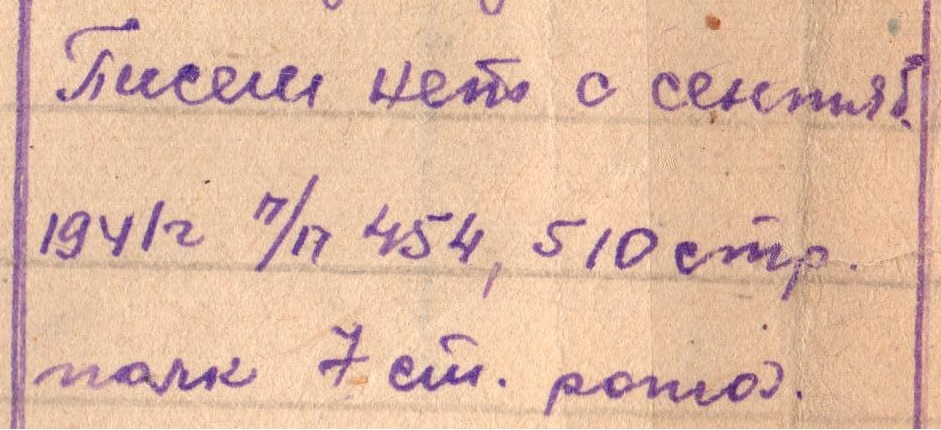 Писем нет с сентяб.
1941г п/п 454, 510 стр.
полк 7 ст. рота.